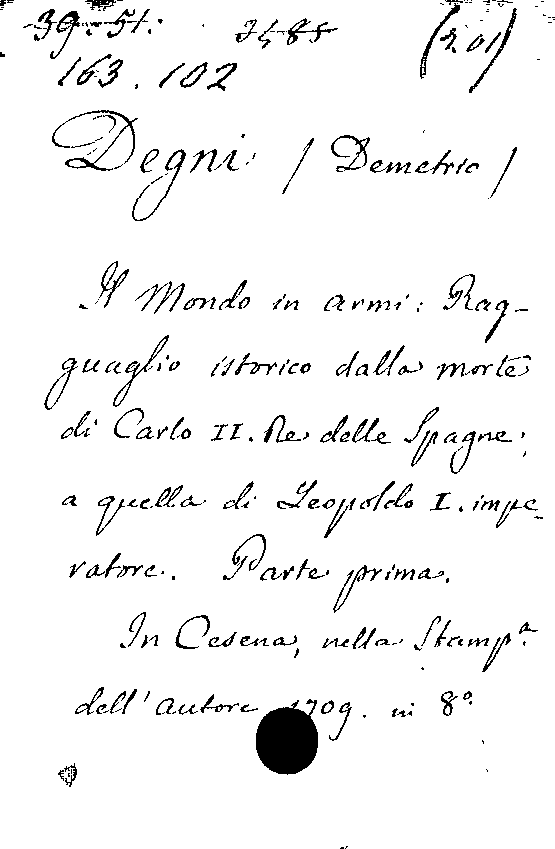 39. 51. 3485 (201)
163.102
Degni / Demetrio /
Il Mondo in armi: Rag-
guaglio istorico dalla morte
di Carlo II. Re delle Spagne,
a quella di Leopoldo I. impe-
ratore. Parte prima.
In Cesena, nella Stampª
dell'autore 1709. in 8º